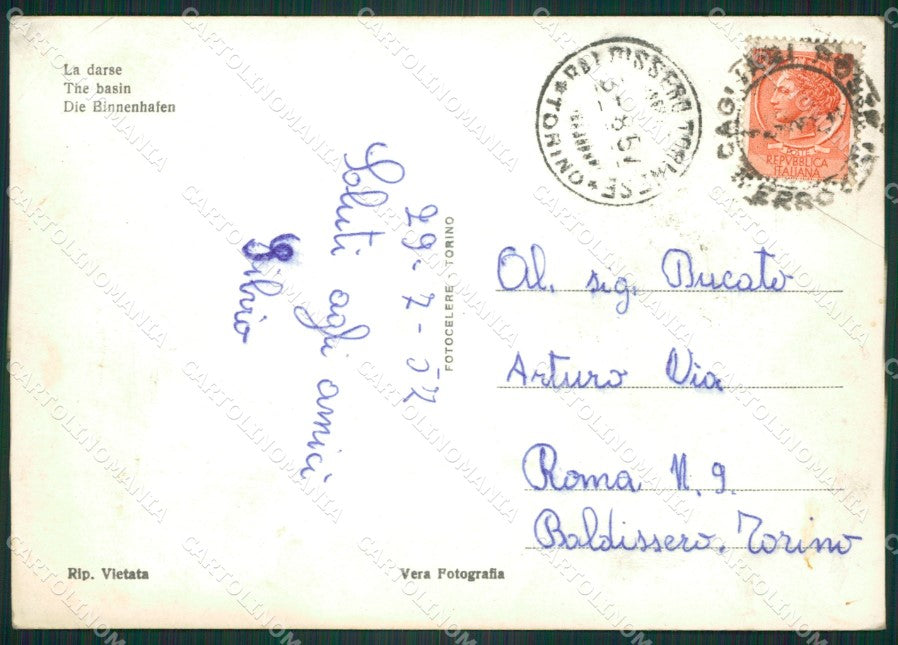 La darse
The basin
Die Binnenhafen
29-7-57
Saluti agli amici
Silvio
FOTOCELERE - TORINO
BALDISSERO TORINESE
* TORINO *
CAGLIARI
POSTE
REPVBBLICA
ITALIANA
Al. sig. Bucato
Arturo Via
Roma N. 9.
Baldissero. Torino
Rip. Vietata
Vera Fotografia
CARTOLINOMANIA